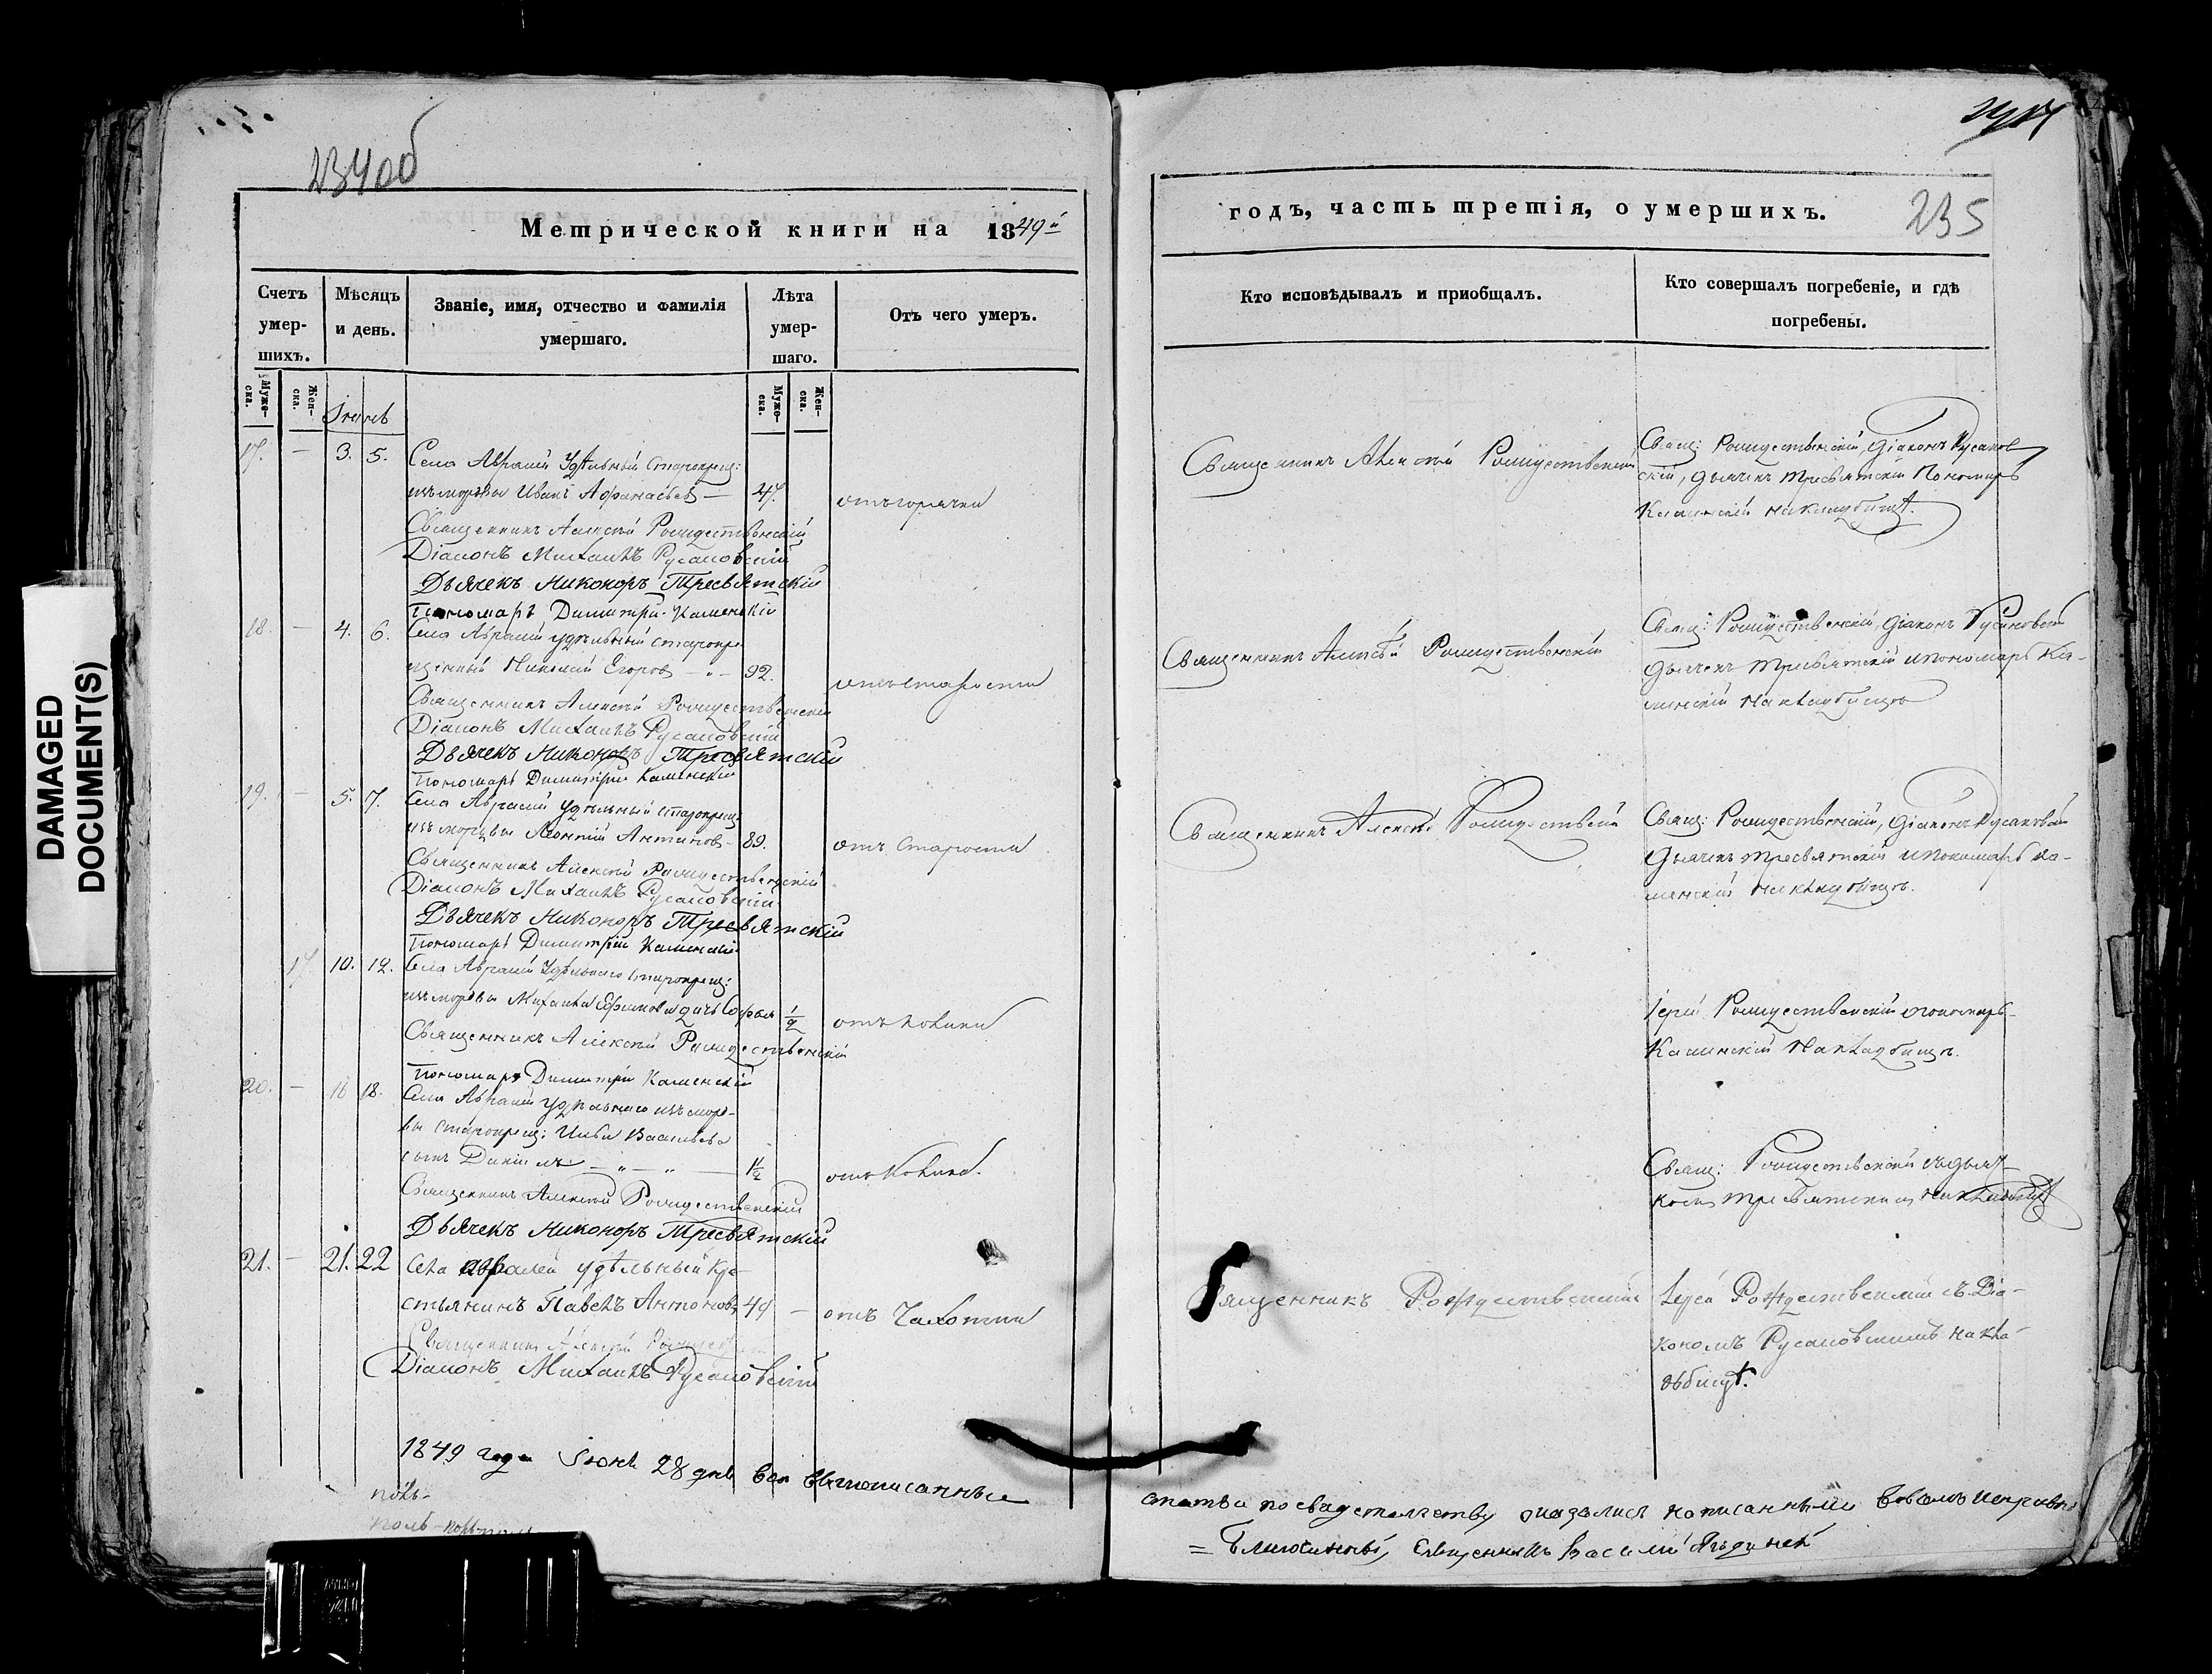 234об
Метрической книги на 1849й
Счетъ умер-шихъ.
Мѣсяцъ и день.
Званіе, имя, отчество и фамилія умершаго.
Лѣта умер-шаго.
Отъ чего умеръ.
Муже-ска.
Жен-ска.
Муже-ска.
Жен-ска.
17. — 3. 5. Села Авралей Удѣльный старокрещ:
изъ мордвы Иванъ Афанасьевъ — 47. отъ горячки
Священникъ Алексѣй Рождественскій
Діаконъ Михаилъ Русановскій
Дьячекъ Никоноръ Тресвятскій
Пономарь Димитрій Каменскій
18. — 4. 6. Села Авралей удѣльный старокре
щенный Николай Егоровъ — 92. отъ старости
Священникъ Алексѣй Рождественскій
Діаконъ Михаилъ Русановскій
Дьячекъ Никоноръ Тресвятскій
Пономарь Димитрій Каменскій
19. — 5. 7. Села Авралей удѣльный старокрещ:
изъ мордвы Леонтій Антиповъ — 89. отъ старости
Священникъ Алексѣй Рождественскій
Діаконъ Михаилъ Русановскій
Дьячекъ Никоноръ Тресвятскій
Пономарь Димитрій Каменскій
17. 10. 12. Села Авралей Удѣльнаго старокрещ:
изъ мордвы Михаила Ефимова дочь 1/2
Священникъ Алексѣй Рождественскій
Пономарь Димитрій Каменскій
20. — 16 18. Села Авралей Удѣльнаго изъ морд-
вы старокрещ: Ильи Васильева
сынъ Даніилъ — " — " — 1/2
Священникъ Алексѣй Рождественскій
Дьячекъ Никоноръ Тресвятскій
21. — 21. 22 Села Авралей удѣльный кре-
стьянинъ Павелъ Антоновъ 49 — отъ Чахотки
Священникъ Алексѣй
Діаконъ Михаилъ Русановскій
1849 года Іюня 28 дня все вышеписанные
годъ, часть третія, о умершихъ.
235
Кто исповѣдывалъ и приобщалъ.
Кто совершалъ погребеніе, и гдѣ погребены.
Священникъ Алексѣй Рождественскій
Свящ: Рождественскій, діаконъ Русанов
скій, дьячекъ Тресвятскій Пономарь
Каменскій на кладбищѣ.
Священникъ Алексѣй Рождественскій
Свящ: Рождественскій, діаконъ Русановскій
дьячекъ Тресвятскій и пономарь Ка-
менскій на кладбищѣ
Священникъ Алексѣй Рождественскій
Свящ: Рождественскій, діаконъ Русановскій
дьячекъ Тресвятскій и пономарь Ка-
менскій на кладбищѣ.
Іерей Рождественскій пономарь
Каменскій на кладбищѣ.
Свящ: Рождественскій съ дьяч-
комъ Тресвятскимъ на кладбищѣ
Священникъ Рождественскій
Іерей Рождественскій съ Діа-
кономъ Русановскимъ на кла-
дбищѣ.
статьи по свидетельству оказались написанными
= Благочинный, Священникъ Василій
DAMAGED
DOCUMENT(S)